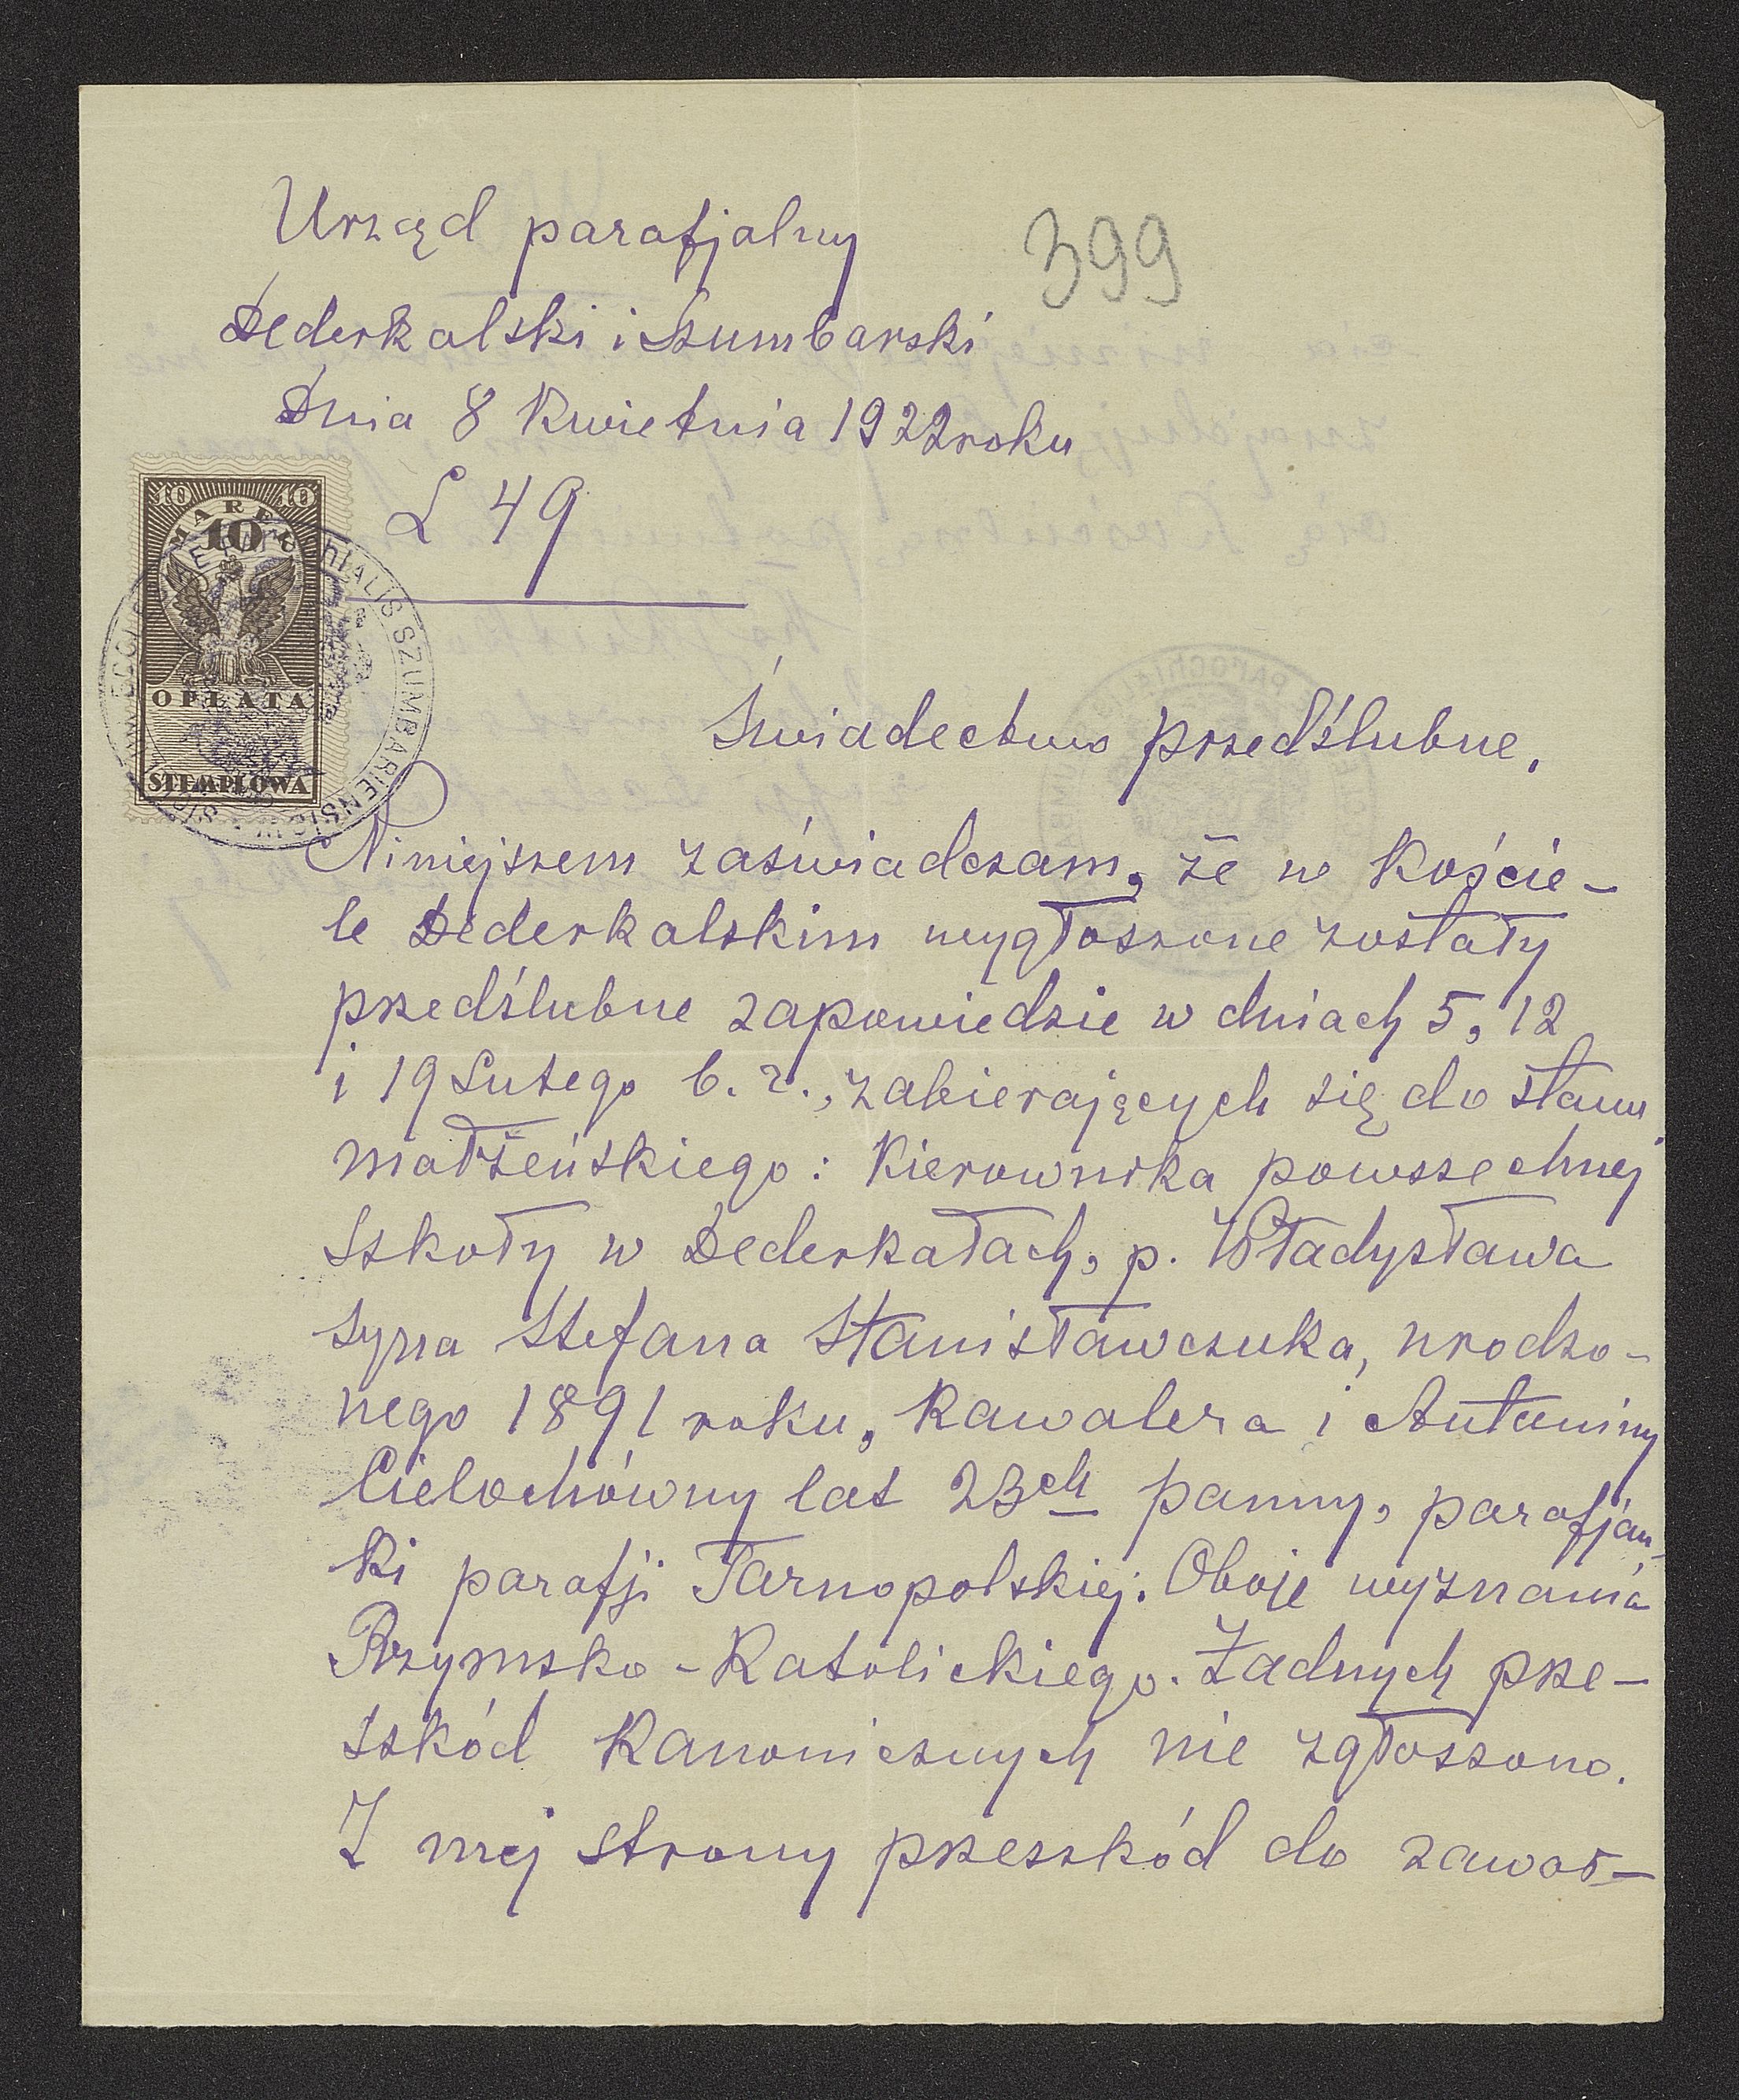 Urząd parafjalny
399
Dederkalski i Szumbarski
Dnia 8 Kwietnia 1922 roku
L 49
10 10
MAREK
10
OPŁATA
STEMPLOWA
SZUMBARIENSIS
Świadectwo przedślubne.
Niniejszem zaświadczam, że w Koście-
le Dederkalskim wygłoszone zostały
przedślubne zapowiedzie w dniach 5, 12
i 19 Lutego b. r., zabierających się do stanu
małżeńskiego: Kierownika powszechnej
Szkoły w Dederkałach, p. Władysława
syna Stefana Stanisławczuka, urodzo-
nego 1891 roku, Kawalera i Antoniny
Cielochówny lat 23ch panny, parafjan-
ki parafji Tarnopolskiej. Oboje wyznania
Rzymsko-Katolickiego. Żadnych prze-
szkód Kanonicznych nie zgłoszono.
Z mej strony przeszkód do zawar-